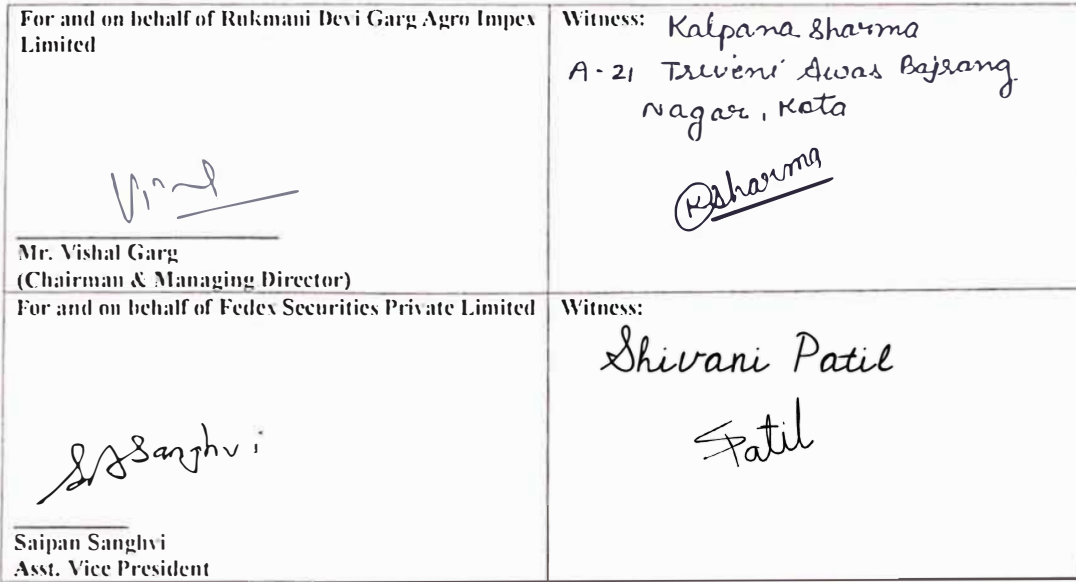 For and on behalf of Rukmani Devi Garg Agro Impex
Limited
Mr. Vishal Garg
(Chairman & Managing Director)
Witness: Kalpana Sharma
A-21 Triveni Awas Bajrang
Nagar, Kota
KSharma
For and on behalf of Fedex Securities Private Limited
SASanghvi
Saipan Sanghvi
Asst. Vice President
Witness:
Shivani Patil
SPatil